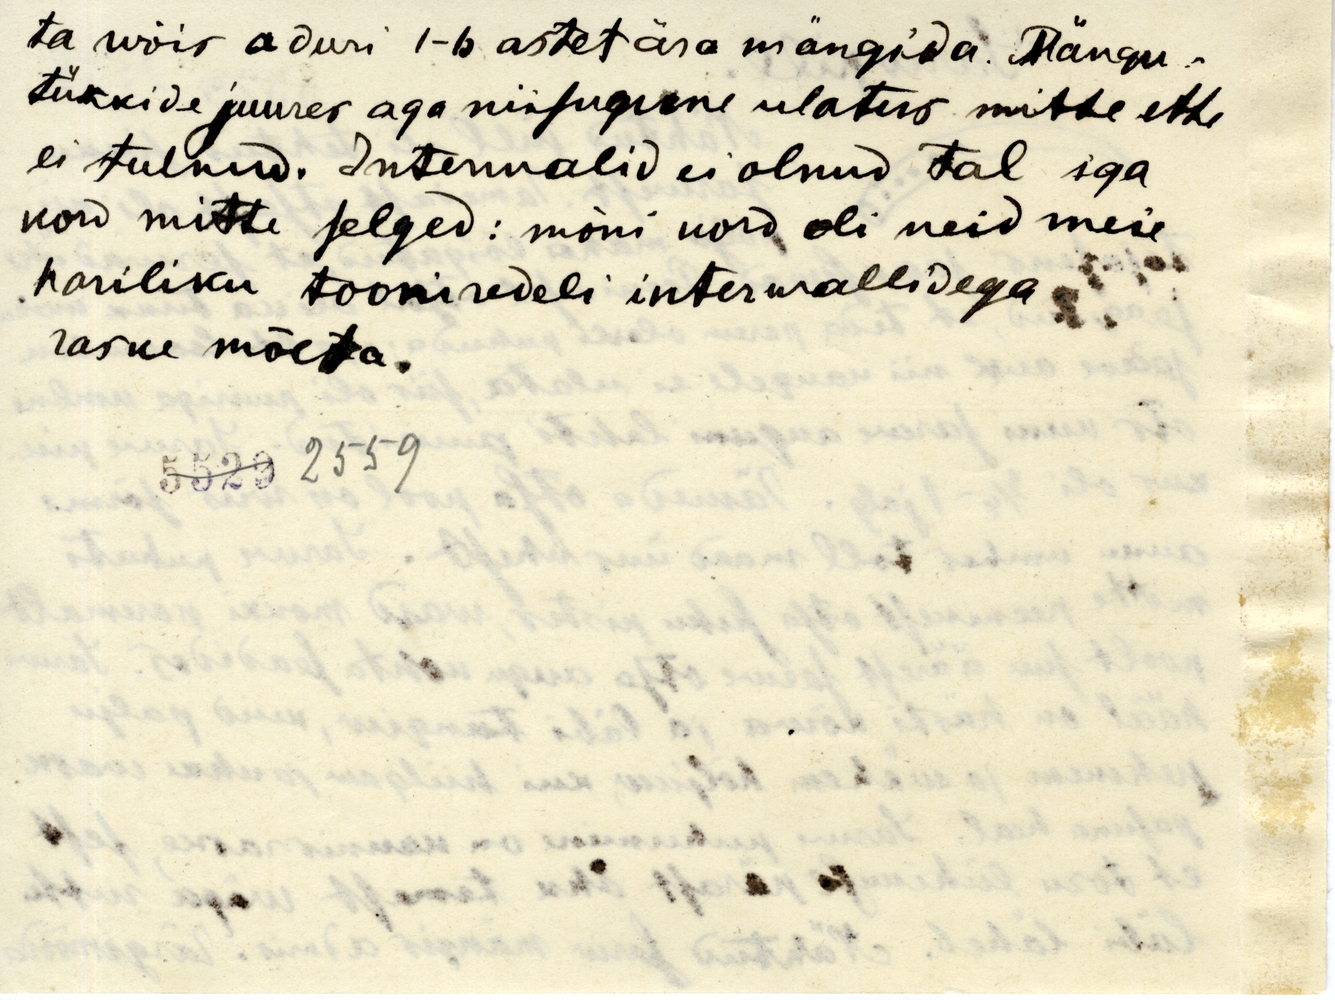 ta wõis a duri 1-6 astet ära mängida. Mängu-
tükkide juures aga niisugune ulatus mitte ette
ei tulnud. Interwalid ei olnud tal iga
kord mitte selged: mõni kord oli neid meie
hariliku tooniredeli interwallidega
raske mõeta.
5529 2559